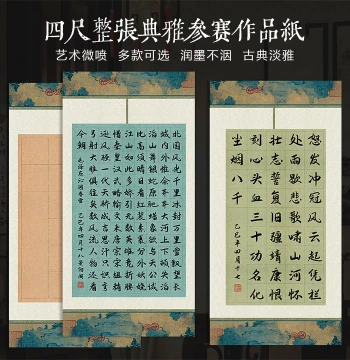 四尺整張典雅参赛作品紙
艺术微喷 多款可选 润墨不洇 古典淡雅
北国风光千里冰封万里雪飘望长
城内外惟余莽莽大河上下顿失滔
滔山舞银蛇原驰蜡象欲与天公试
比高须晴日看红装素裹分外妖娆
江山如此多娇引无数英雄竞折腰
惜秦皇汉武略输文采唐宗宋祖稍
逊风骚一代天骄成吉思汗只识弯
弓射大雕俱往矣数风流人物还看
今朝
乙巳年四月十八
怒发冲冠风云起凭栏
处雨歇悲歌啸山河怀
壮志誓复旧疆靖康恨
刻心头血三十功名化
尘烟八千
乙巳年四月十七